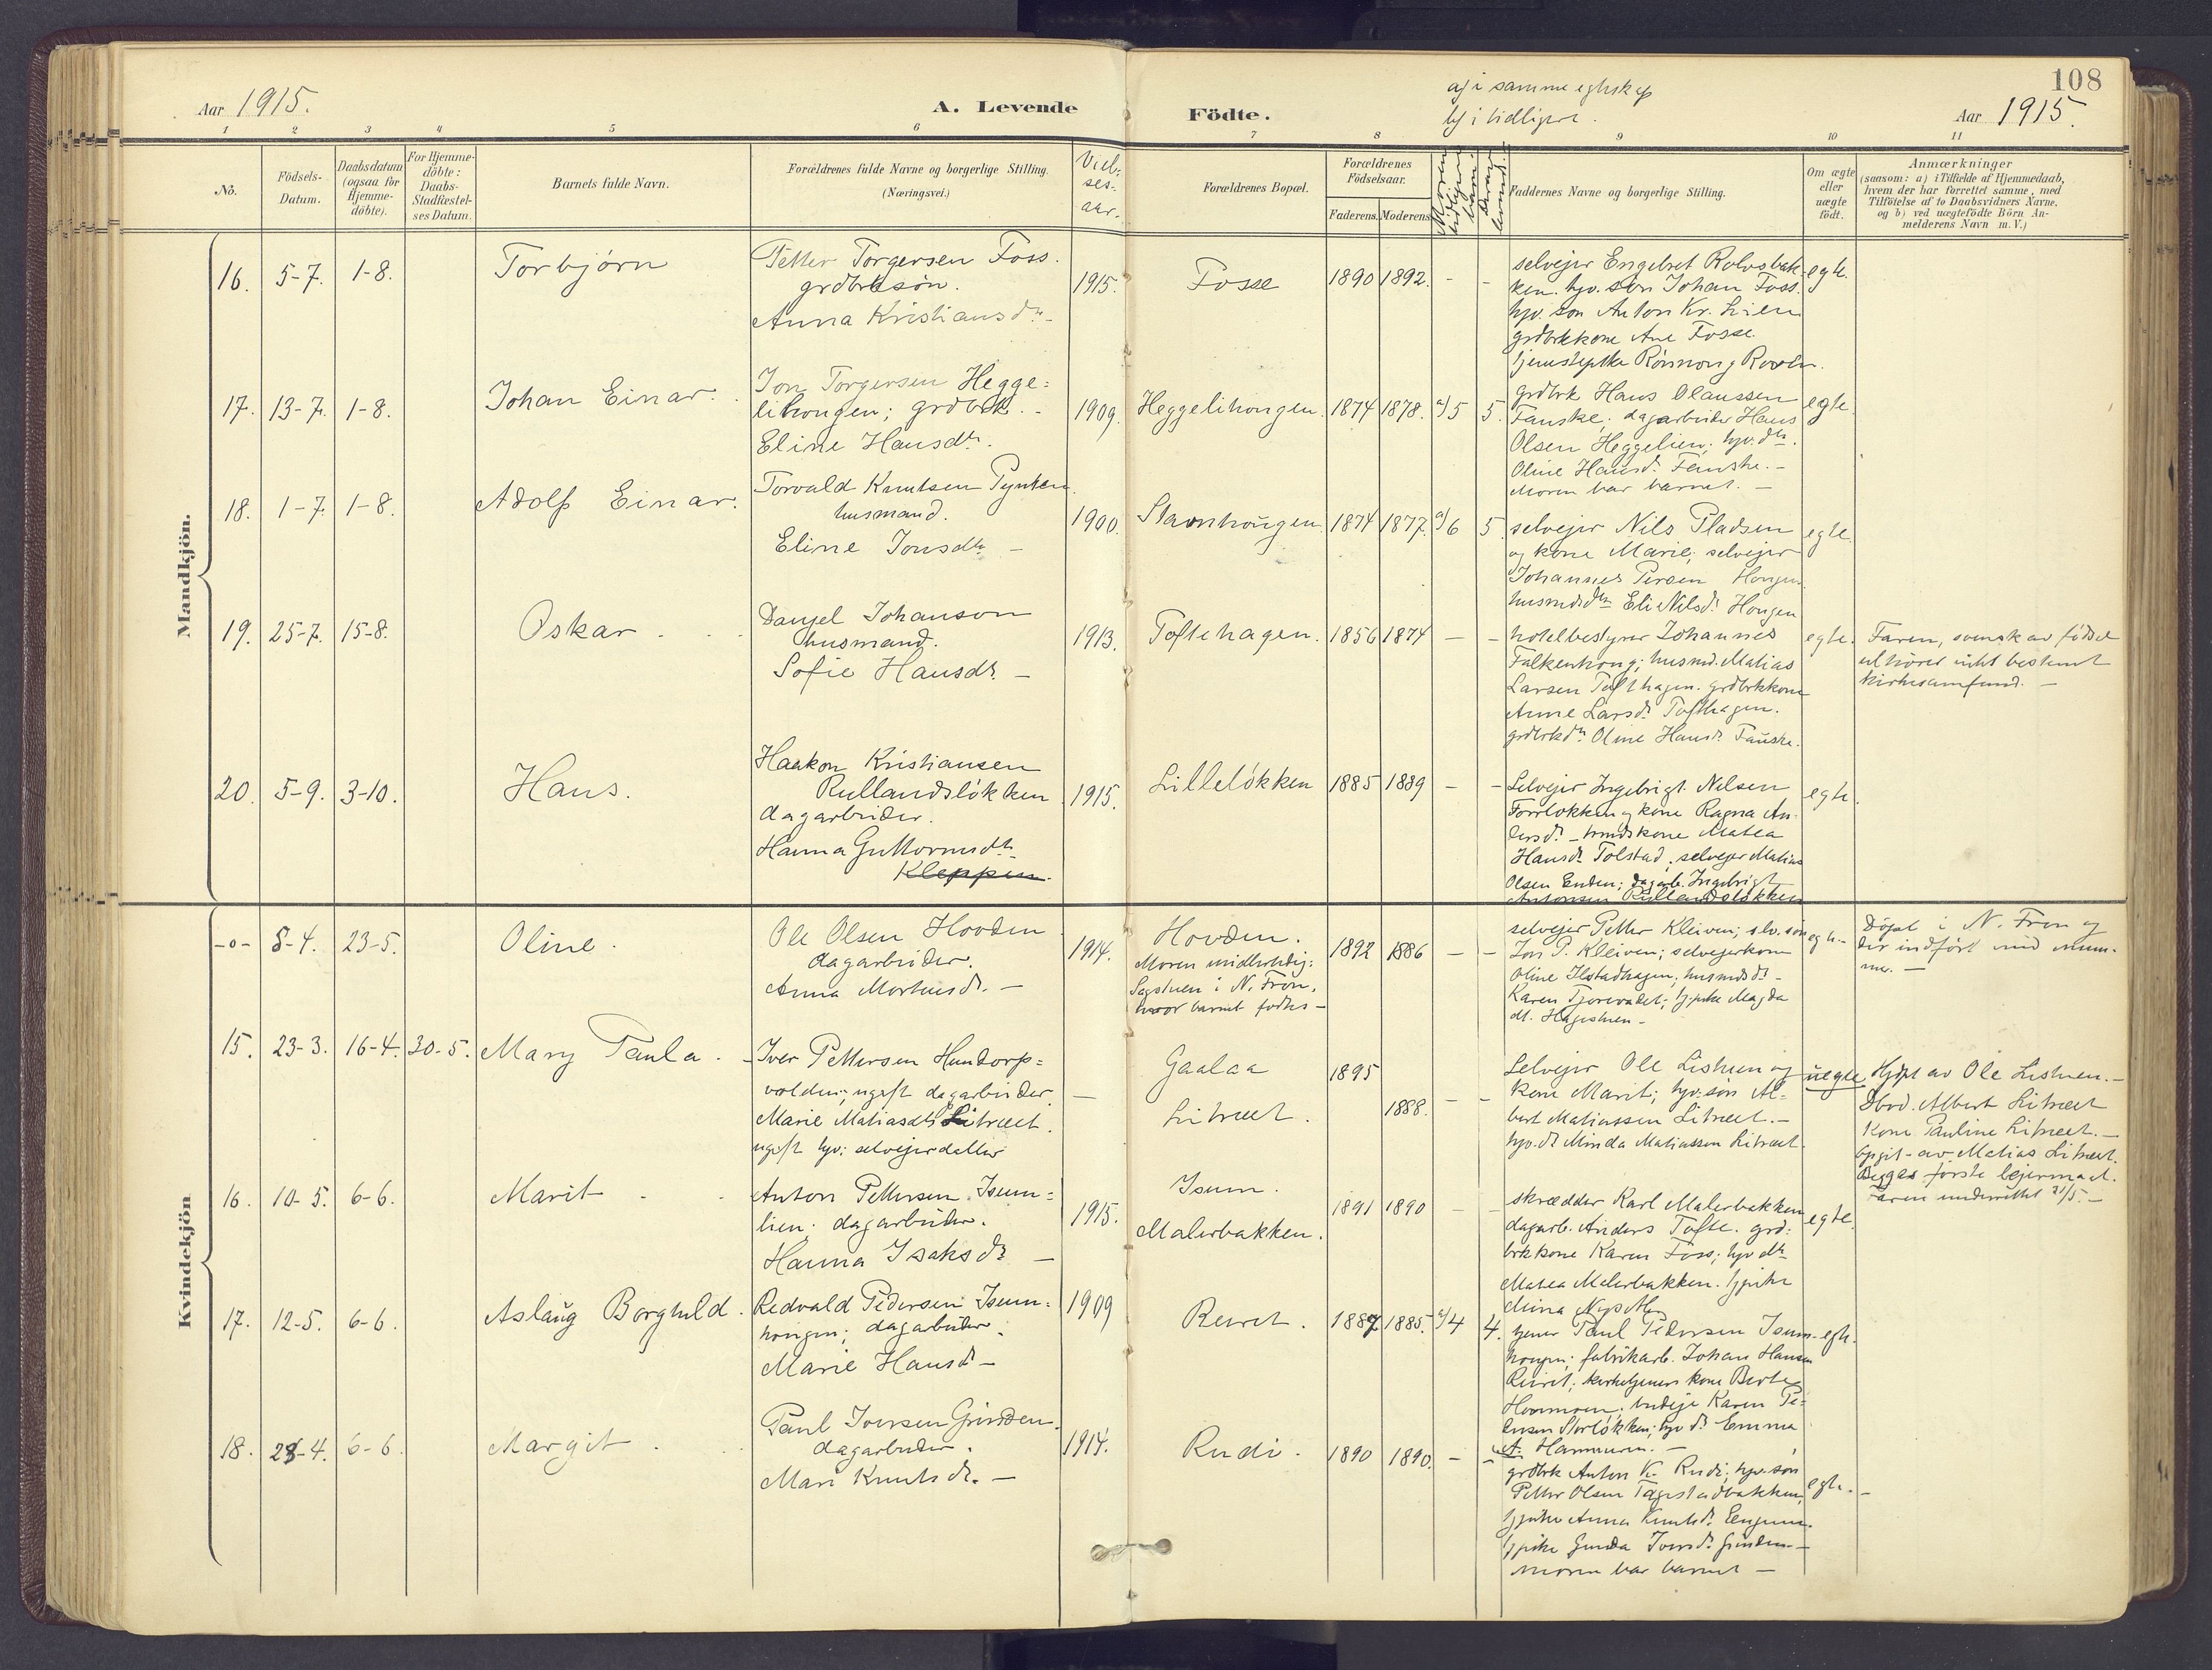 Aar 1915.
A. Levende
Födte.
a) i samme egteskap
b) i tidligere.
108
Aar 1915.
1 2 3 4 5 6 7 8 9 10 11
No.
Födsels-
Datum.
Daabsdatum
(ogsaa for
Hjemme-
döbte).
For Hjemme-
döbte:
Daabs-
Stadfæstel-
ses Datum.
Barnets fulde Navn.
Forældrenes fulde Navne og borgerlige Stilling.
(Næringsvei.)
Viel-
ses-
aar.
Forældrenes Bopæl.
Forældrenes
Födselsaar.
Faderens.
Moderens.
Faddernes Navne og borgerlige Stilling.
Om ægte
eller
uægte
födt.
Anmærkninger
(saasom: a) i Tilfælde af Hjemmedaab,
hvem der har forrettet samme, med
Tilföielse af to Daabsvidners Navne.
og b) ved uægtefödte Börn An-
melderens Navn m. V.)
Mandkjön.
16. 5-7. 1-8.
Torbjørn
Petter Torgersen Foss.
grdbrksøn.
Anna Kristiansdtr
1915.
Fosse
1890 1892. - -
selvejer Engebret Rolvsbak-
ken. hjv. søn Johan Foss.
hjv. søn Anton Kr. Lien
grdbrkkone Ane Fosse.
egte.
17. 13-7. 1-8.
Johan Einar.
Jon Torgersen Hegge=
lihougen; grdbrk. -
Eline Hansdtr.
1909.
Heggelihougen.
1874 1878. a/5 5.
grdbrk Hans Olaussen
Fauske; dagarbeider Hans
Olsen Heggelien; hjv. dtr.
Oline Hansd. Fauske. -
Moren bar barnet. -
egte.
18. 1-7. 1-8.
Adolf Einar.
Torvald Knutsen Pynten
husmand.
Eline Jonsdtr -
1900.
Slavnhougen
1874 1877. a/6 5.
selvejer Nils Pladsen
og kone Marie; selvejer
Johannes Persen Hougen
husmdsdtr Eli Nilsd. Hougen
egte.
19. 25-7. 15-8.
Oskar
Danjel Johanson
husmand.
Sofie Hansdr. -
1913.
Toftehagen.
1856 1874 - -
hotelbestyrer Johannes
Falkenhoug; husmd. Matias
Larsen Tofthagen. grdbrkkone
Anne Larsd. Tofthagen.
grdbrkdtr Oline Hansd. Fauske.
egte.
Faren, svensk av fødsel
tilhører intet bestemt
kirkesamfund. -
20. 5-9. 3-10.
Hans.
Haakon Kristiansen
Rullandsløkken
dagarbeider.
Hanna Guttormsdtr
Kleppen.
1915.
Lilleløkken
1885 1889 - -
Selvejer Ingebrigt Nilsen
og kone Ragna An-
dersdr. - kone Matea
Hansdr. Tolstad, selvejer Matias
Olsen Enden; dagarb. Ingebrigt
Antonsen Rullandsløkken
egte.
Kvindekjön
-0- 8-4. 23-5.
Oline.
Ole Olsen Hovden
dagarbeider.
Anna Mortensd. -
1914.
Hovden.
Moren midlertidig:
i N. Fron,
hvor barnet fødtes -
1892 1886 - -
selvejer Petter Kleiven; slv. søn
Jon P. Kleiven; selvejerkone
Oline Ilstadhagen; husmdsd. -
Karen
egte. -
Døpt i N. Fron og
der indført med num-
mer. -
15. 23-3. 16-4. 30-5.
Mary Paula.
Iver Pettersen Hundorp=
volden; ugift dagarbeider
Marie Matiasdtr Litræet.
ugift hjv; selvejerdatter
-
Gaalaa
Litræet.
1895
1888. - -
Selvejer Ole Listuen og
kone Marit; hjv. søn Al-
bert Matiassen Litræet. -
hjv. dr Minda Matiassen Litræet.
uegte
Hjdpt av Ole Listuen. -
Dbvd. Albert Litræet
Kone Pauline Litræet. -
Opgit av Matias Litræet.
Begges første lejermaal.
Faren underrettet 21/5. -
16. 10-5. 6-6.
Marit
Anton Pettersen Isum=
lien. dagarbeider.
Hanna Isaksdr -
1915.
Isum.
Malerbakken.
1891 1890 - -
skrædder Karl Malerbakken
dagarb. Anders Tofte. grd-
brkkone Karen Foss; hjv dtr
Matea Malerbakken.
egte.
17. 12-5. 6-6.
Aslaug Borghild.
Redvald Pedersen Isum=
hougen; dagarbeider.
Marie Hansd. -
1909
Reiret.
1887 1885. a/4 4.
tjener Paul Pedersen Isum-
hougen; fabrikarb. Johan Hansen
Reiret; kirketjeners kone Berte
budeje Karen Pe-
dersen Storløkken; hjv dr Emma
egte.
18. 28-4. 6-6.
Margit
Paul Iversen Grinden.
dagarbeider.
Mari Knutsdr. -
1914.
Rudi.
1890 1890. - -
grdbrk Anton K. Rudi; hjv. søn
Petter Olsen
Anna Knutsd.
Gunda Iversd. Grinden -
moren bar barnet -
egte. -